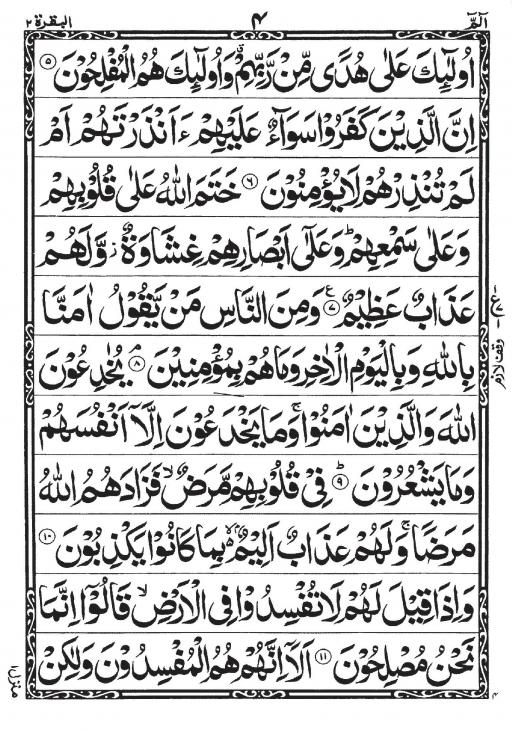 الٓمّٓ ۴ البقرة ۲
اُولٰٓئِكَ عَلٰى هُدًى مِّنْ رَّبِّهِمْ ۗ وَاُولٰٓئِكَ هُمُ الْمُفْلِحُوْنَ ۵
اِنَّ الَّذِيْنَ كَفَرُوْا سَوَآءٌ عَلَيْهِمْ ءَاَنْذَرْتَهُمْ اَمْ
لَمْ تُنْذِرْهُمْ لَا يُؤْمِنُوْنَ ۶ خَتَمَ اللّٰهُ عَلٰى قُلُوْبِهِمْ
وَعَلٰى سَمْعِهِمْ ؕ وَعَلٰٓى اَبْصَارِهِمْ غِشَاوَةٌ ز وَّلَهُمْ
عَذَابٌ عَظِيْمٌ ۷ ع وَمِنَ النَّاسِ مَنْ يَّقُوْلُ اٰمَنَّا
بِاللّٰهِ وَبِالْيَوْمِ الْاٰخِرِ وَمَا هُمْ بِمُؤْمِنِيْنَ ۘ ۸ يُخٰدِعُوْنَ
اللّٰهَ وَالَّذِيْنَ اٰمَنُوْا ۚ وَمَا يَخْدَعُوْنَ اِلَّآ اَنْفُسَهُمْ
وَمَا يَشْعُرُوْنَ ؕ ۹ فِيْ قُلُوْبِهِمْ مَّرَضٌ ۙ فَزَادَهُمُ اللّٰهُ
مَرَضًا ۚ وَلَهُمْ عَذَابٌ اَلِيْمٌ ۢ ۙ بِمَا كَانُوْا يَكْذِبُوْنَ ۱۰
وَاِذَا قِيْلَ لَهُمْ لَا تُفْسِدُوْا فِى الْاَرْضِ ۙ قَالُوْٓا اِنَّمَا
نَحْنُ مُصْلِحُوْنَ ۱۱ اَلَآ اِنَّهُمْ هُمُ الْمُفْسِدُوْنَ وَلٰكِنْ
ع
۷
وقف لازم
منزل ۱